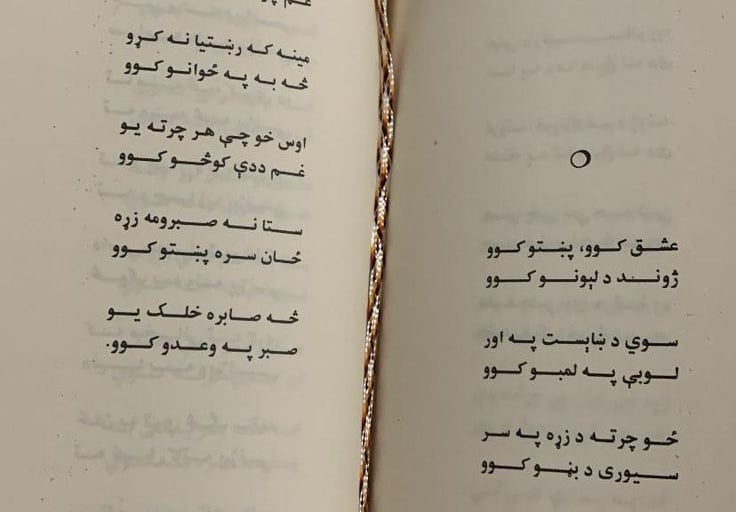 عشق کوو، پښتو کوو
ژوند د لېونو کوو
سوي د ښاېست په اور
لوبې په لمبو کوو
ځو چرته د زړه په سر
سیوری د بڼو کوو
غم
مینه که رښتیا نه کړو
څه به په ځوانو کوو
اوس خو چې هر چرته یو
غم ددې کوڅو کوو
ستا نه صبرومه زړه
ځان سره پښتو کوو
څه صابره خلک یو
صبر په وعدو کوو.